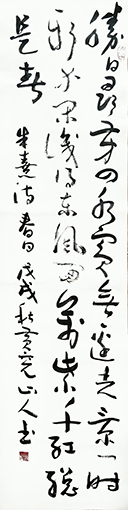 勝日尋芳泗水濱無邊光景一時
新等閒識得東風面萬紫千紅總
是春 朱熹詩春日 戊戌秋 山人書